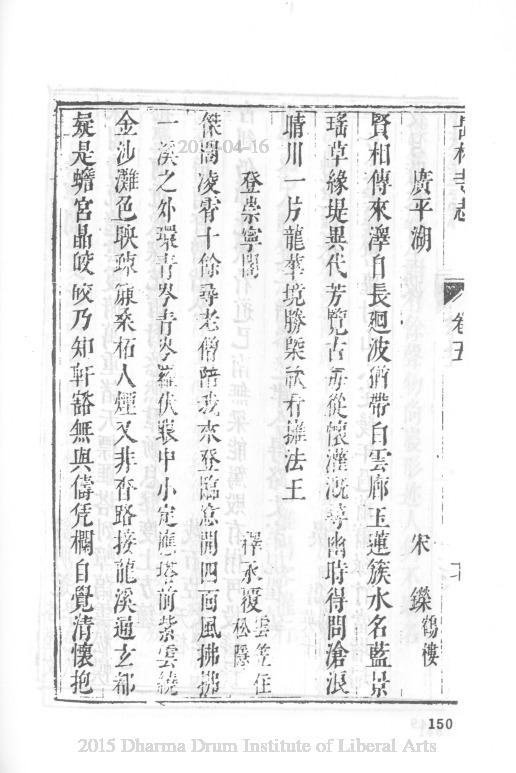 昌林寺志　卷五
廣平湖　宋鑅鶴樓
賢相傳來澤自長廻波猶帶白雲廊玉蓮簇水名藍景
瑤草緣堤異代芳覽古每從懷灌溉尋幽時得問滄浪
晴川一片龍華境勝槩欣看擁法王
登崇寧閣　釋永覆雲笠住松隱
傑閣凌霄十餘尋老僧陪我來登臨窓開四面風拂拂
一溪之外環青岑青岑羅伏襟中小定應塔前紫雲繞
金沙灘色映疎簾桑柘人煙又非杳路接龍溪通玄都
疑是蟾宮晶皎皎乃知軒豁無與儔凭欄自覺清懷抱
150
2015-04-16
2015 Dharma Drum Institute of Liberal Arts